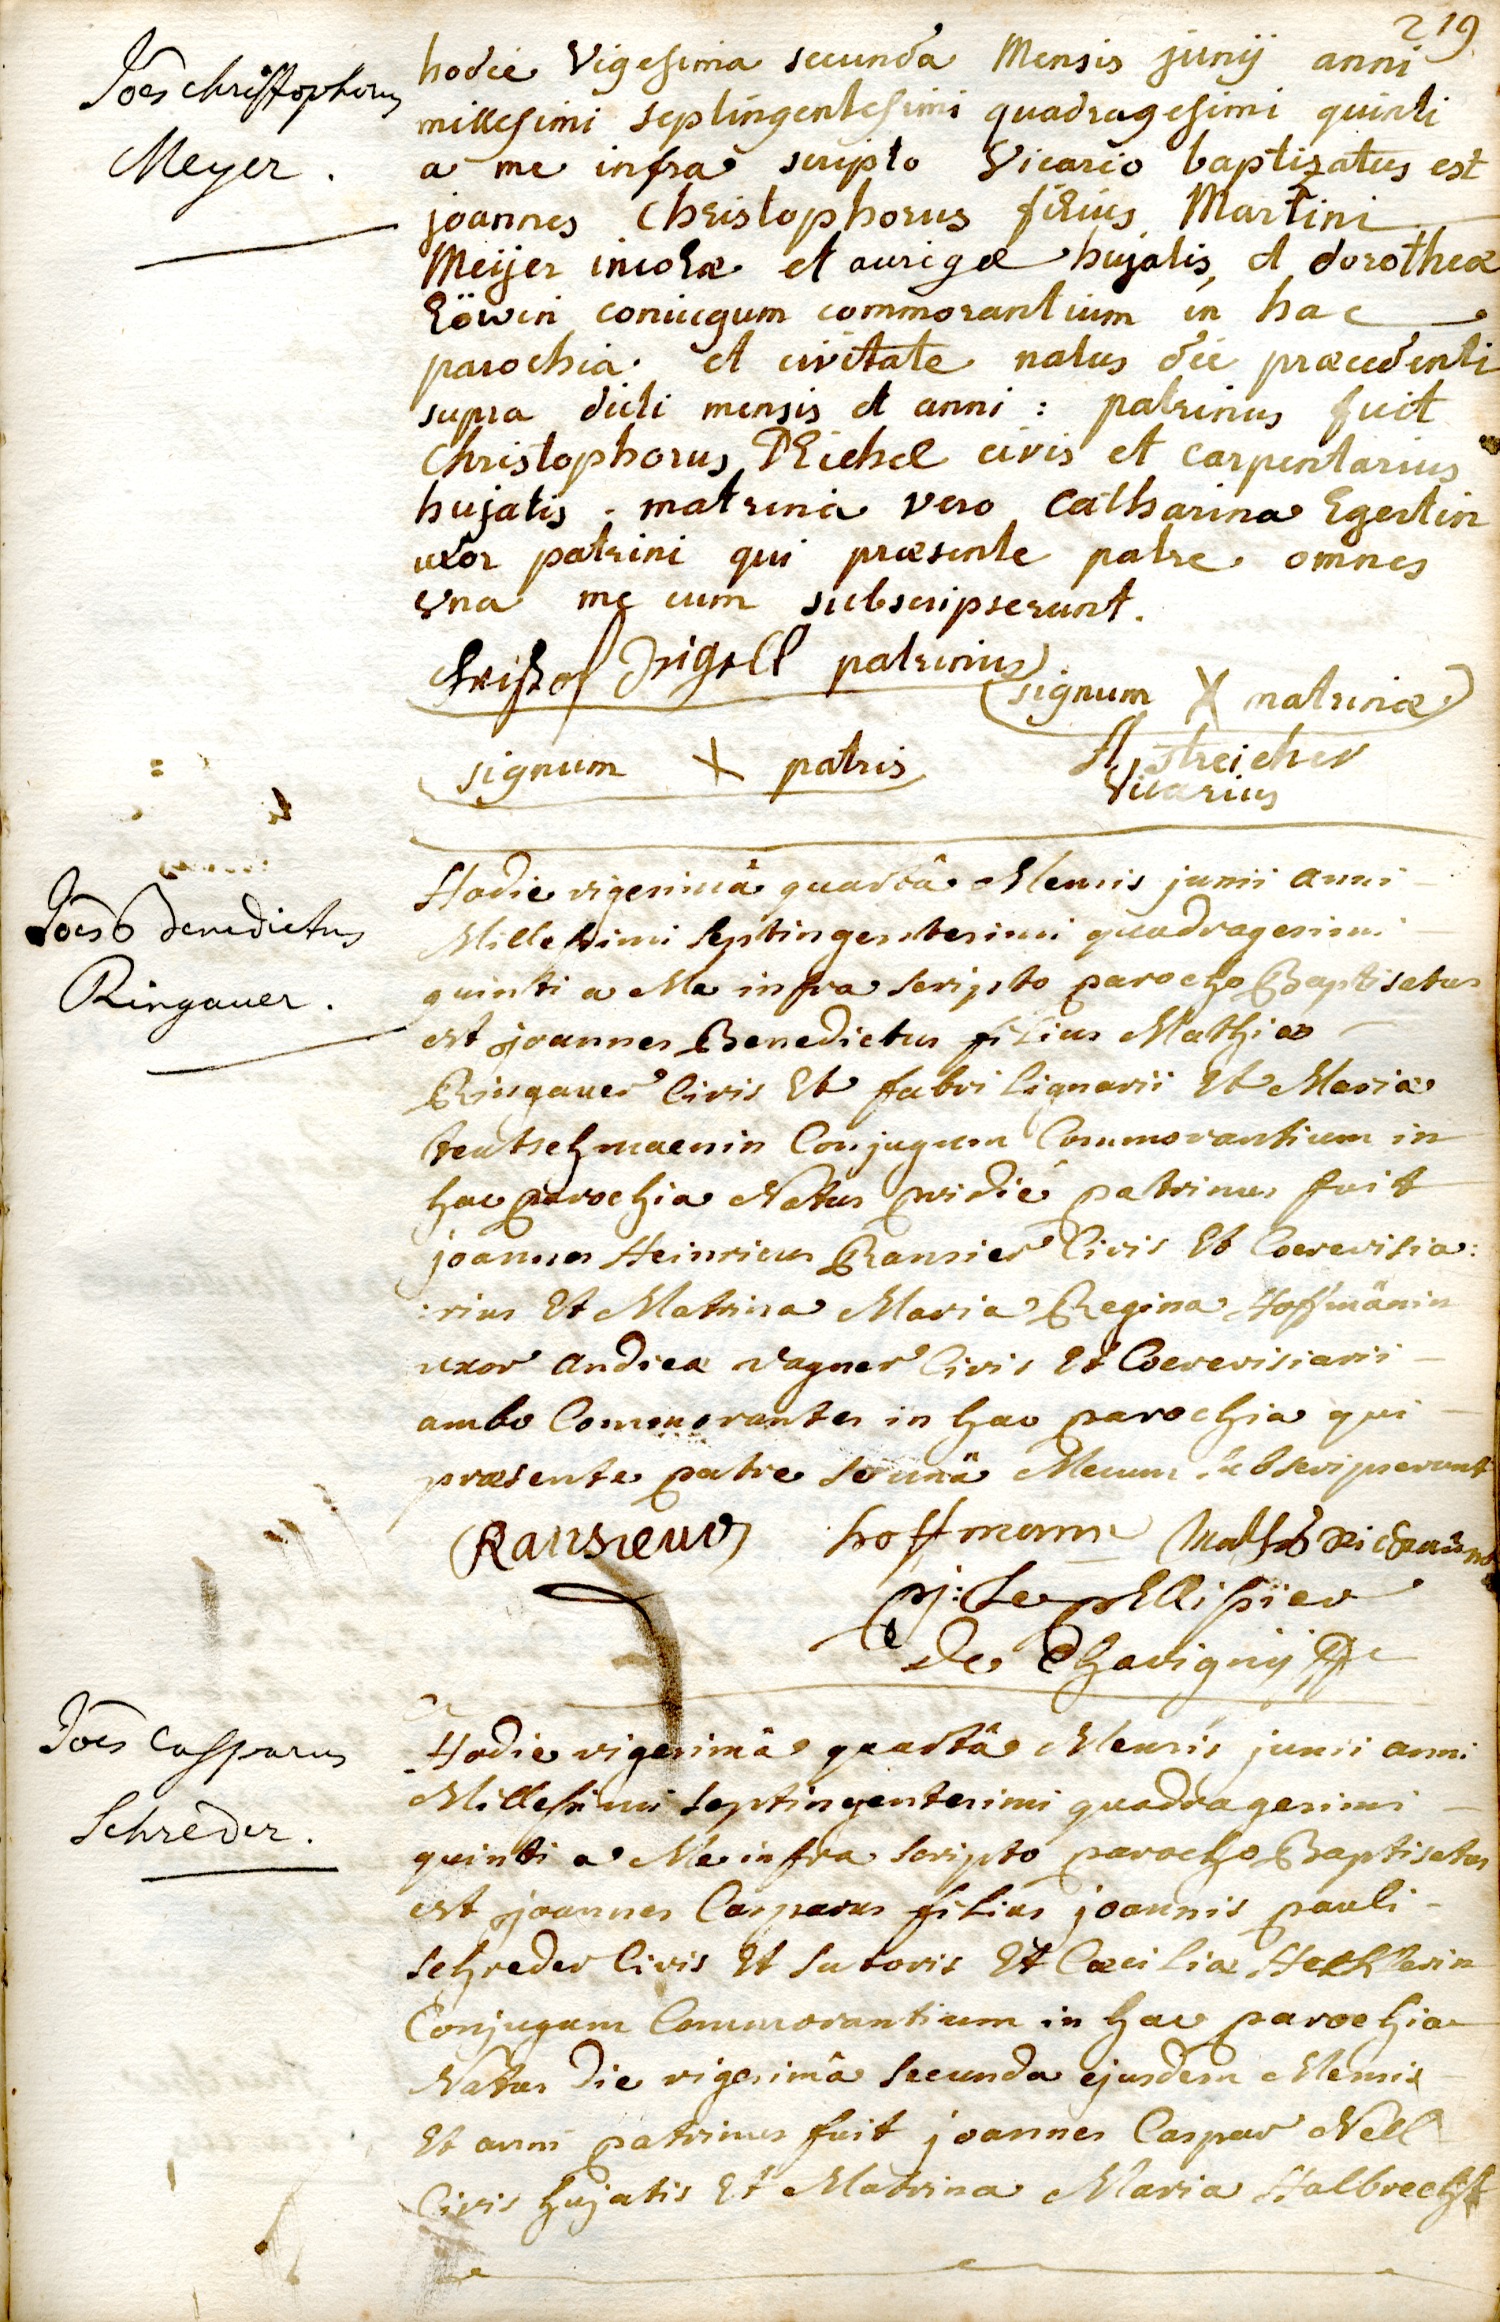 219
Joēs Christophorus
Meyer.
hodie vigesima secunda Mensis junij anni
millesimi septingentesimi quadragesimi quinti
a me infra scripto vicario baptizatus est
joannes Christophorus filius Martini
Meijer incolæ et aurigæ hujatis, et dorotheæ
Löwin coniugum commorantium in hac
parochia et civitate natus die præcedenti
supra dicti mensis et anni : patrinus fuit
christophorus civis et carpentarius
hujatis . matrina vero Catharina Egertin
uxor patrini qui præsente patre omnes
una me cum subscripserunt.
patrinus
signum X matrinæ
signum X patris
streicher
Vicarius
Joēs Benedictus
Ringauer.
Hodie vigesimâ quartâ Mensis junii anni
Millesimi septingentesimi quadragesimi
quinti a Me infra scripto parocho Baptisatus
est joannes Benedictus filius Mathiæ
Ringauer Civis Et fabri lignarii Et Mariæ
Conjugum Commorantium in
hac parochia Natus pridie patrinus fuit
joannes Heinricus Ransier Civis Et Coerevisia:
:rius Et Matrina Maria Regina Hoffmänin
uxor andreæ vagner Civis Et Coerevisiarii
ambo Commorantes in hac parochia qui
præsente patre unâ Mecum subscripserunt
Ransieur hoffmann
pj: Le pellissier
De Chavignij
Joēs Casparus
Schreder.
Hodie vigesimâ quartâ Mensis junii anni
Millesimi septingentesimi quadragesimi
quinti a Me infra scripto parocho Baptisatus
est joannes Casparus filius joannis pauli
schreder Civis Et sutoris Et Cæciliæ
Conjugum Commorantium in hac parochia
Natus die vigesimâ secunda ejusdem Mensis
Et anni patrinus fuit joannes Caspar Nell
Civis hujatis Et Matrina Maria Halbrecht